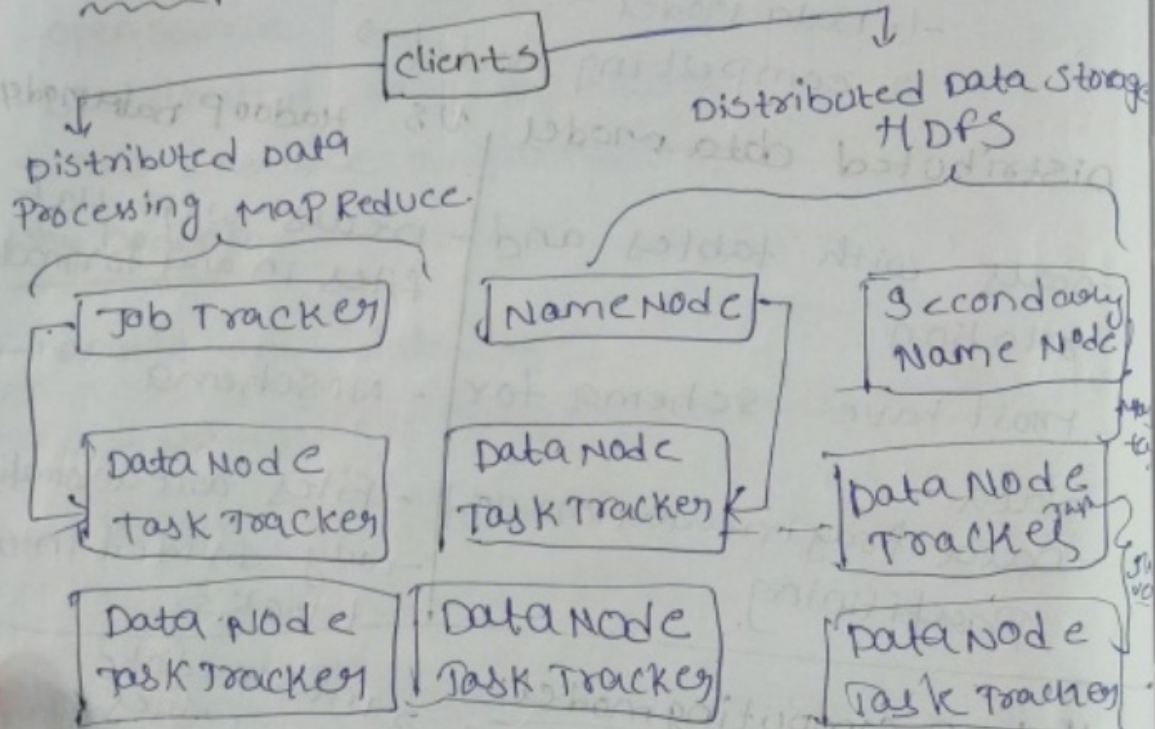 Clients
Distributed Data
Processing MapReduce.
Distributed Data Storage
HDFS
Job Tracker
NameNode
Secondary
Name Node
Data Node
Task Tracker
Data Node
Task Tracker
Data Node
Task
Tracker
Data Node
Task Tracker
Data Node
Task Tracker
Data Node
Task Tracker